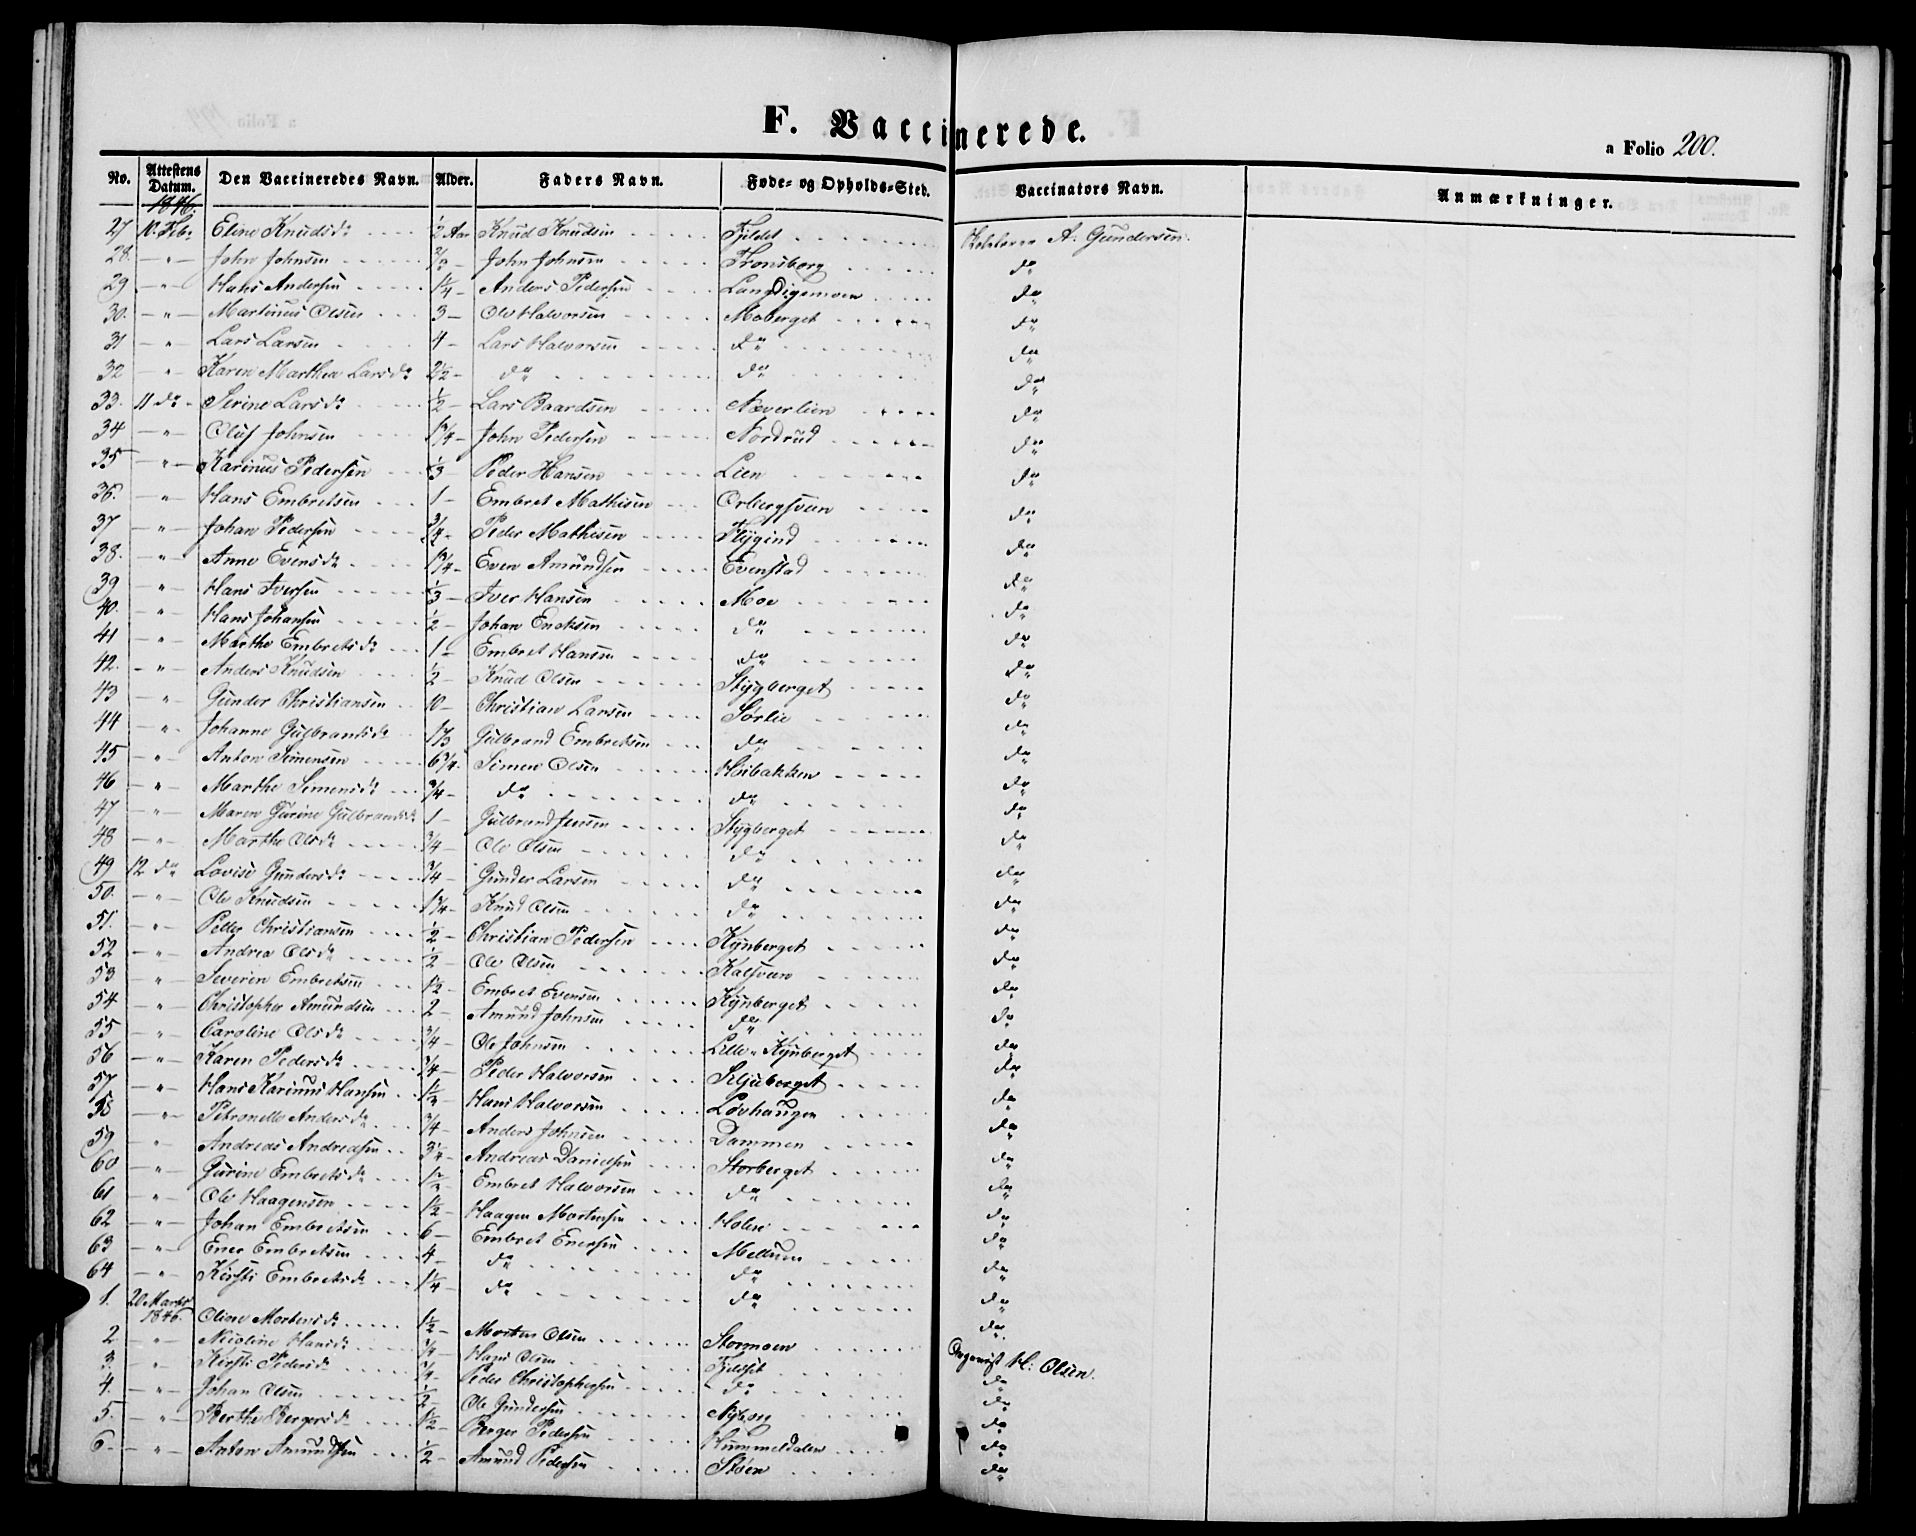 F. Vaccinerede.
a Folio 200.
No. Attestens Datum. Den Vaccineredes Navn. Alder. Faders Navn. Føde- og Opholds-Sted. Vaccinators Navn. Anmærkninger.
1846.
27 10. Febr Eline Knudsdr ½ Aar Knud Knudsen Fjeldet A. Gundersen.
28. — " — John Johnsen John Johnsen Fronsborg do
29 — " — Hans Andersen 1¼ — Anders Pedersen do
30. — " — Martinus Olsen 3 — Ole Halvorsen Moberget do
31 — " Lars Larsen 4 — Lars Halvorsen do do
32 — " Karen Marthea Larsdr 2½ — do do do
33. 11 do — Serine Larsdr ½ — Lars Baardsen Næverlien do
34 — " — Oluf Johnsen 1¾ — John Pedersen Nordrud do
35 — " — Karinus Pedersen ⅓ Peder Hansen Lien do
36. — " — Hans Embretsen 1 — Embret Mathisen do
37 — " — Johan Pedersen ¾ — Peder Mathisen Flygind do
38. — " — Anne Evensdr 1¾ — Even Amundsen Evenstad do
39 — " — Hans Iversen ⅓ — Iver Hansen Moe do
40. — " — Hans Johansen ½ — Johan Encksen do do
41 — " — Marthe Embretsdr 1 — Embret Hansen do do
42. — " — Anders Knudsen ½ — Knud Olsen Stygberget do
43 — " — Gunder Christiansen 10 — Christian Larsen Sørlie do
44 — " — Johanne Gulbrandsdr 1⅓ Gulbrand Embretsen do do
45 — " — Anton Simensen 6¾ — Simen Olsen Høibakken do
46 — " — Marthe Simensdr ¾ — do do do
47 — " — Maren Gurine Gulbrandsdr 1 — Gulbrand Jensen Stygberget do
48 — " — Marthe Olsdr ¾ — Ole Olsen do do
49 12 do Lovise Gundersdr ¾ — Gunder Larsen do do
50. — " — Ole Knudsen 1¾ — Knud Olsen do do
51. — " — Peder Christiansen ½ — Christian Pedersen Kynberget do
52 — " — Andrea Olsdr ½ — Ole Olsen Kalsveen do
53 — " — Severin Embretsen 1½ — Embret Evensen Kynberget do
54 — " — Christopher Amundsen 2 — Amund Johnsen do do
55 — " — Caroline Olsdr ¾ — Ole Johnsen Lille-Kynberget do
56 — " — Karen Pedersdr ¾ — Peder Halvorsen Kljuberget do
57 — " — Hans Karinus Hansen 1½ — Hans Halvorsen Løvhaugen do
58 — " — Petronelle Andersdr ¾ — Anders Johnsen Dammen do
59 — " — Andreas Andreasen 3¼ — Andreas Danielsen Storberget do
60 — " — Gurine Embretsdr 1½ — Embret Halvorsen do do
61 — " — Ole Haagensen 1½ — Haagen Mortensen Holen do
62 — " — Johan Embretsen 6 — Embret Enersen Mellum do
63 — " — Ener Embretsen 4 — do do do
64 — " — Kirsti Embretsdr 1¼ — do do do
1. 20 Marts 1846. Oline Mortensdr 1½ — Morten Olsen Stormoen H. Olsen.
2 — " — Nicoline Hansdr ¾ — Hans Olsen Fjeldset do
3. — " — Kirsti Pedersdr ¾ — Peder Christophersen do do
4. — " — Johan Olsen ½ — Ole Gundersen Nyborg do
5. — " — Berthe Bergersdr 1½ — Berger Pedersen Hummeldalen do
6 — — " — Anton Amundsen ½ — Amund Pedersen Støen do